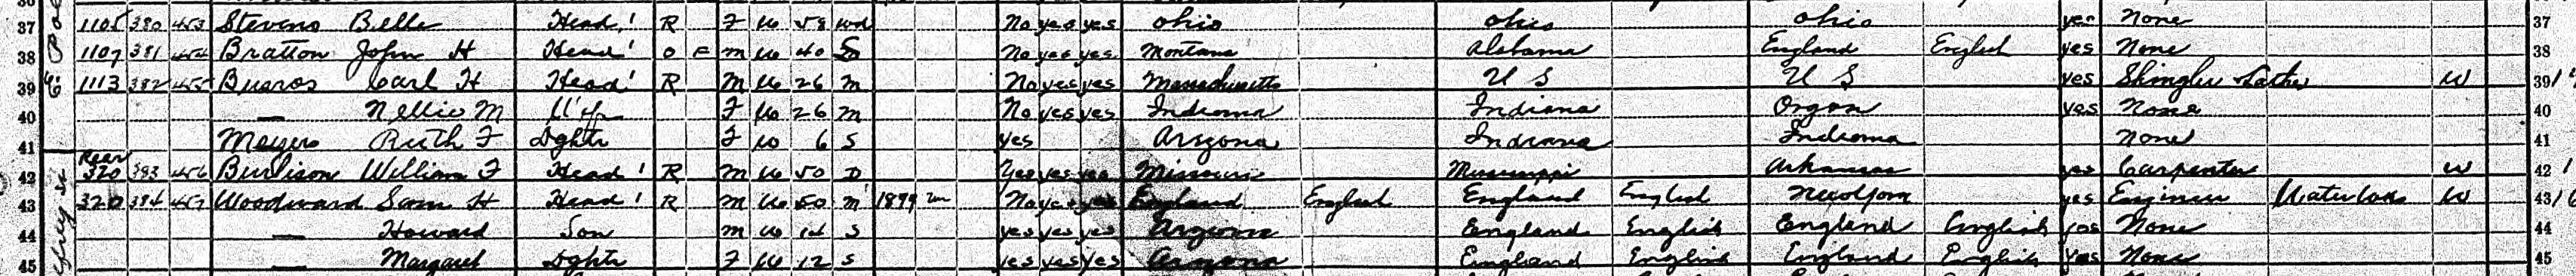 37 1105 380 453 Stevens Belle Head 1 R F W 58 Wd No yes yes Ohio Ohio Ohio yes None 37
38 1107 381 454 Bratton John H Head 1 O F M W 40 S No yes yes Montana Alabama England English yes None 38
39 1113 382 455 Carl H Head 1 R M W 26 M No yes yes Massachusetts U S U S yes Shingler Lather W 39
40 — Nellie M Wife F W 26 M No yes yes Indiana Indiana Oregon yes None 40
41 Meyers Ruth F Dghtr F W 6 S yes Arizona Indiana Indiana None 41
42 Rear 320 383 456 Burlison William F Head 1 R M W 50 D Yes yes yes Missouri Mississippi Arkansas yes Carpenter W 42
43 320 384 457 Woodward Sam H Head 1 R M W 50 M 1899 No yes England English England English yes Engineer W 43
44 — Howard Son M W 14 S yes yes yes Arizona England English England English yes None 44
45 — Margaret Dghtr F W 12 S yes yes yes Arizona England English England English Yes None 45